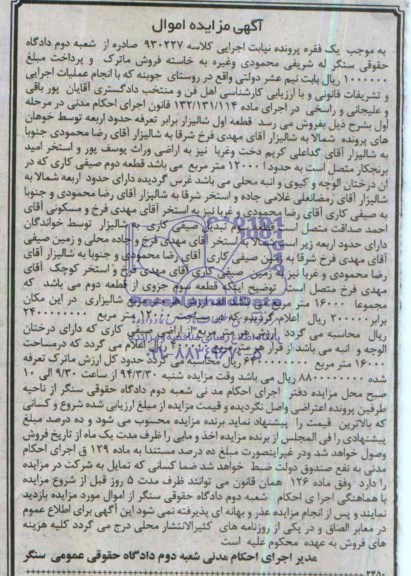 آگهی مزایده اموال
به موجب یک فقره پرونده نیابت اجرایی کلاسه ۹۳۰۲۲۷ صادره از شعبه دوم دادگاه
حقوقی سنگر له شریفی محمودی وغیره به خاسته فروش ماترک و پرداخت مبلغ
۱۰۰۰۰۰۰ ریال بابت نیم عشر دولتی واقع در روستای جوینه که با انجام عملیات اجرایی
و تشریفات قانونی و با ارزیابی کارشناسی اهل فن و منتخب دادگستری آقایان پور باقی
و علیجانی و راسخی در اجرای ماده ۱۳۲/۱۳۱/۱۱۴ قانون اجرای احکام مدنی در مرحله
اول بشرح ذیل بفروش می رسد: قطعه اول شالیزار برابر تعرفه حدود اربعه توسط خوهان
های پرونده شمالا به شالیزار آقای مهدی فرخ شرقا به شالیزار آقای رضا محمودی جنوبا
به شالیزار آقای گداعلی کریم دخت وغربا نیز به اراضی وراث یوسف پور و استخر امید
برنجکار متصل است به حدود ۱۲۰۰۰ متر مربع می باشد قطعه دوم صیفی کاری که در
ان درختان الوچه و کیوی و انبه محلی می باشد غرس گردیده دارای حدود اربعه شمالا به
شالیزار آقای رمضانعلی غلامی جاده و استخر شرقا به شالیزار آقای رضا محمودی و جنوبا
به صیفی کاری آقای رضا محمودی و غربا نیز به استخر آقای مهدی فرخ و مسکونی آقای
احمد صداقت متصل است قطعه سوم تبدیل صیفی کاری به شالیزار توسط خواندگان
دارای حدود اربعه زیر است شمالا به استخر آقای مهدی فرخ و جاده محلی و زمین صیفی
آقای مهدی فرخ شرقا به زمین صیفی کاری آقای رضا محمودی و جنوبا به شالیزار آقای
رضا محمودی و غربا نیز به زمین صیفی کاری آقای مهدی فرخ و استخر کوچک آقای
مهدی فرخ متصل است توضیح اینکه قطعه سوم جزوی از قطعه دوم می باشد که
مجموعا ۱۶۰۰۰ متر مربع می باشد ارزش هر متر مربع شالیزاری در این مکان
برابر ۲۰۰۰۰۰ ریال اعلام گردیده که در مساحت ۱۲۰۰۰ متر مربع ۲۴۰۰۰۰۰۰۰۰
ریال محاسبه می گردد ارزش هر متر مربع از اراضی صیفی کاری که دارای درختان
الوچه و انبه می باشد از قرار هر متر مربع ریال اعلام می گردد که درمساحت
۱۶۰۰۰ متر مربع ۶۴۰۰۰۰۰۰۰۰ ریال محاسبه می گردد حدود کل ارزش ماترک تعرفه
شده ۸۸۰۰۰۰۰۰۰۰ ریال می باشد وقت مزایده شنبه ۹۴/۳/۳۰ از ساعت ۹/۳۰ الی ۱۰
صبح محل مزایده دفتر اجرای احکام مد نی شعبه دوم دادگاه حقوقی سنگر از ناحیه
طرفین پرونده اعتراضی واصل نگردیده و قیمت مزایده از مبلغ ارزیابی شده شروع و کسانی
که بالاترین قیمت را پیشنهاد نماید برنده مزایده محسوب می شود و ده درصد مبلغ
پیشنهادی را فی المجلس از برنده مزایده اخذ و مابی را ظرف مدت یک ماه از تاریخ فروش
وصول خواهد شد ودر غیراینصورت مبلغ ده درصد مستندا به ماده ۱۲۹ ق اجرای احکام
مدنی به نفع صندوق دولت ضبط خواهد شد ضما کسانی که تمایل به شرکت در مزایده
را دارد وفق ماده ۱۲۶ همان قانون می توانند ظرف مدت ۵ روز قبل از شروع مزایده
با هماهنگی اجرا ی احکام شعبه دوم دادگاه حقوقی سنگر از اموال مورد مزایده بازدید
نمایند و پس از انجام مزایده عذر و بهانه ای پذیرفته نمی شود این آگهی برای اطلاع عموم
در معابر الصاق و در یکی از روزنامه های کثیرالانتشار محلی درج می گردد کلیه هزینه
های فروش به عهده محکوم علیه است
مدیر اجرای احکام مدنی شعبه دوم دادگاه حقوقی عمومی سنگر